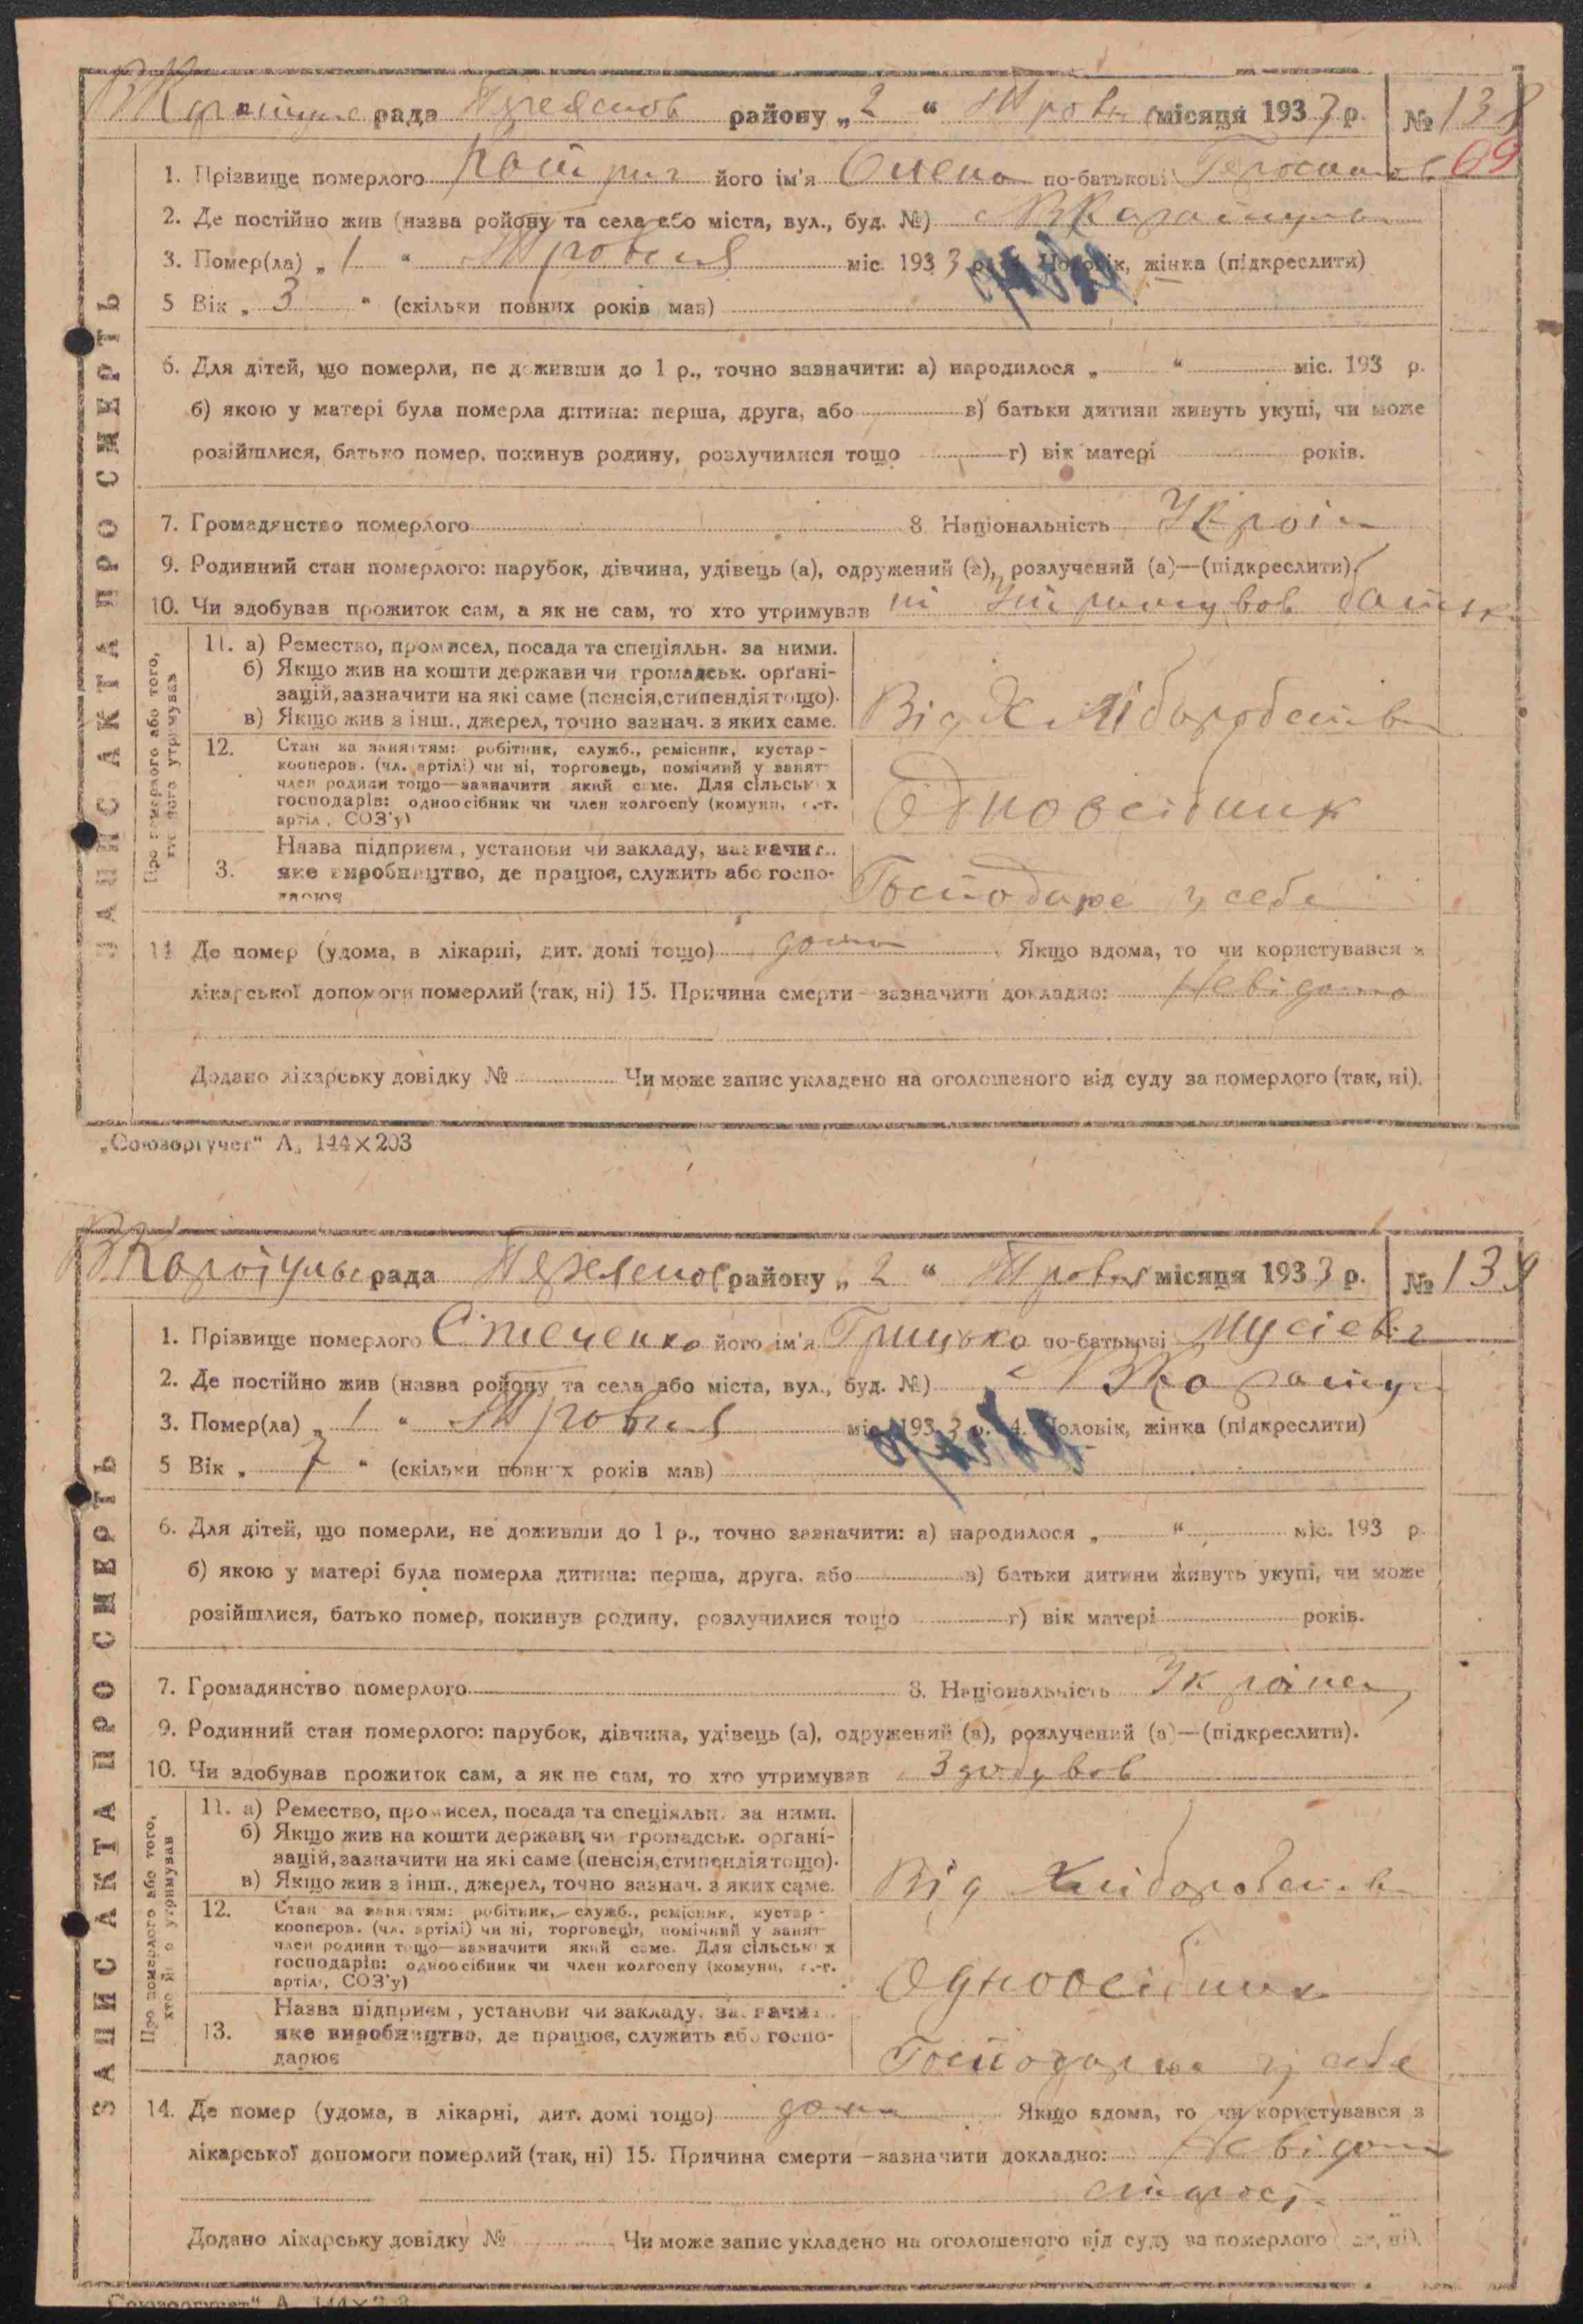 рада району „2“ Травня місяця 1933 р. № 138
69
1. Прізвище померлого його ім'я Олена по-батькові
2. Де постійно жив (назва ройону та села або міста, вул., буд. №) с
3. Помер(ла) „1“ Травня міс. 1933 р. 4. Чоловік, жінка (підкреслити)
5 Вік „3“ (скільки повних років мав)
6. Для дітей, що померли, не доживши до 1 р., точно зазначити: а) народилося „ “ міс. 193 р.
б) якою у матері була померла дитина: перша, друга, або в) батьки дитини живуть укупі, чи може
розійшлися, батько помер, покинув родину, розлучилися тощо г) вік матері років.
7. Громадянство померлого 8. Національність Україн
9. Родинний стан померлого: парубок, дівчина, удівець (а), одружений (а), розлучений (а)—(підкреслити).
10. Чи здобував прожиток сам, а як не сам, то хто утримував ні утримував батько
ЗАПИС АКТА ПРО СМЕРТЬ
Про померлого або того,
хто його утримував
11. а) Ремество, промисел, посада та спеціяльн. за ними.
б) Якщо жив на кошти держави чи громадськ. орґані-
зацій, зазначити на які саме (пенсія, стипендія тощо).
в) Якщо жив з інш., джерел, точно зазнач. з яких саме.
Від Хліборобства
12. Стан за заняттям: робітник, служб., ремісник, кустар-
кооперов. (чл. артілі) чи ні, торговець, помічний у занят-
член родини тощо—зазначити який саме. Для сільських
господарів: одноосібник чи член колгоспу (комуни, с.-г.
артіл., СОЗ'у)
Одноосібник
Назва підприєм., установи чи закладу, зазначит.
3. яке виробництво, де працює, служить або госпо-
дарює
Господарює у себе
14 Де помер (удома, в лікарні, дит. домі тощо) дома. Якщо вдома, то чи користувався з
лікарської допомоги померлий (так, ні) 15. Причина смерти—зазначити докладно: Невідомо
Додано лікарську довідку № Чи може запис укладено на оголошеного від суду за померлого (так, ні).
„Союзоргучет“ А₅ 144×203
рада району „2“ Травня місяця 1933 р. № 139
1. Прізвище померлого його ім'я Грицько по-батькові Мусієв
2. Де постійно жив (назва ройону та села або міста, вул., буд. №) с
3. Помер(ла) „1“ Травня міс. 1933 р. 4. Чоловік, жінка (підкреслити)
5 Вік „7“ (скільки повних років мав)
6. Для дітей, що померли, не доживши до 1 р., точно зазначити: а) народилося „ “ міс. 193 р.
б) якою у матері була померла дитина: перша, друга, або в) батьки дитини живуть укупі, чи може
розійшлися, батько помер, покинув родину, розлучилися тощо г) вік матері років.
7. Громадянство померлого 8. Національність Українец
9. Родинний стан померлого: парубок, дівчина, удівець (а), одружений (а), розлучений (а)—(підкреслити).
10. Чи здобував прожиток сам, а як не сам, то хто утримував Здобував
ЗАПИС АКТА ПРО СМЕРТЬ
Про померлого або того,
хто його утримував
11. а) Ремество, промисел, посада та спеціяльн. за ними.
б) Якщо жив на кошти держави чи громадськ. орґані-
зацій, зазначити на які саме (пенсія, стипендія тощо).
в) Якщо жив з інш., джерел, точно зазнач. з яких саме.
Від Хліборобства
12. Стан за заняттям: робітник, служб., ремісник, кустар-
кооперов. (чл. артілі) чи ні, торговець, помічний у занят-
член родини тощо—зазначити який саме. Для сільських
господарів: одноосібник чи член колгоспу (комуни, с.-г.
артіл., СОЗ'у)
Одноосібник
Назва підприєм., установи чи закладу, зазначит.
13. яке виробництво, де працює, служить або госпо-
дарює
Господарює у себе
14. Де помер (удома, в лікарні, дит. домі тощо) дома Якщо вдома, то чи користувався з
лікарської допомоги померлий (так, ні) 15. Причина смерти—зазначити докладно: Невідом
старост
Додано лікарську довідку № Чи може запис укладено на оголошеного від суду за померлого (так, ні).
„Союзоргучет“ А₅ 144×203